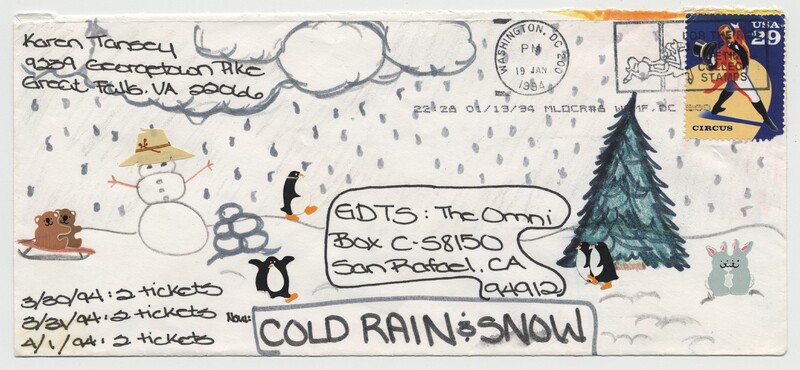 Karen Tansey
9289 Georgetown Pike
Great Falls, VA 22066
WASHINGTON, DC 200
PM
19 JAN
1994
STAMPS
USA
29
CIRCUS
22:28 01/19/94 MLOCR#8 DC 200
GDTS: The Omni
Box C-S8150
San Rafael, CA
94912
3/30/94: 2 tickets
3/31/94: 2 tickets
4/1/94: 2 tickets
COLD RAIN & SNOW